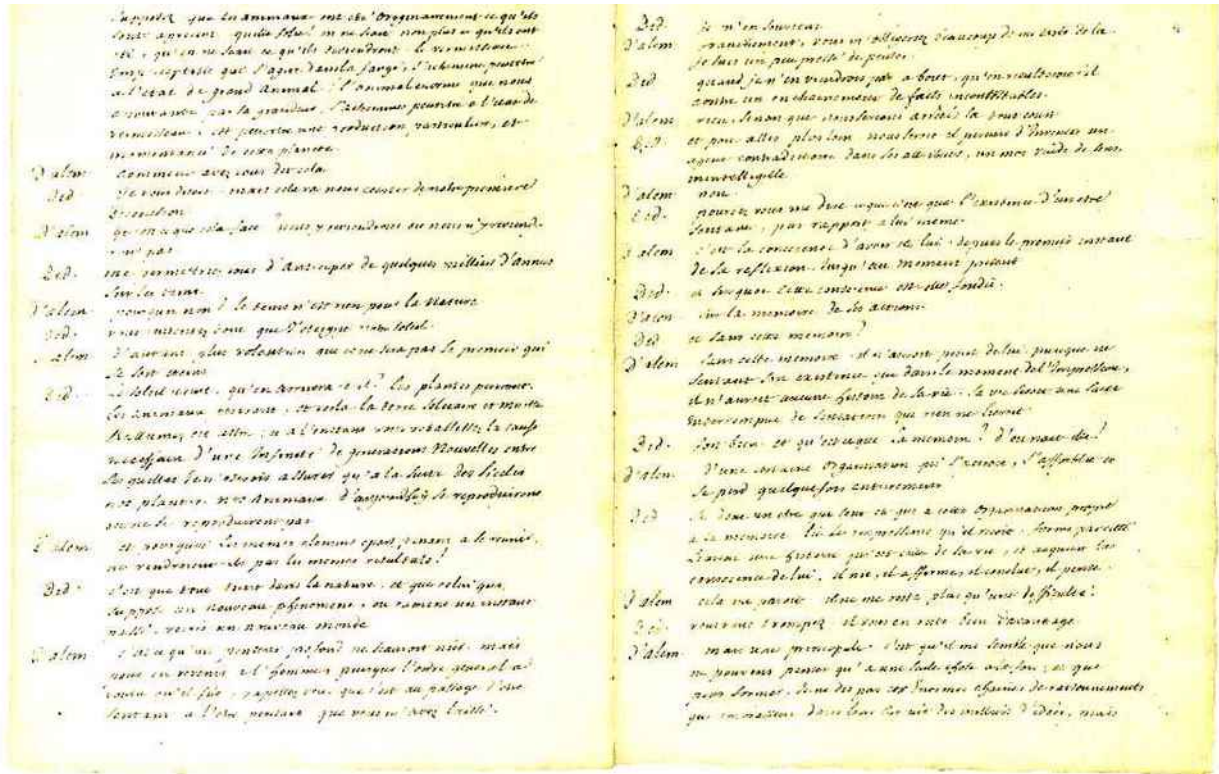 supposez que les animaux ont été originairement ce qu'ils
sont à présent quelle folie! on ne sait non plus ce qu'ils ont
été, qu'on ne sait ce qu'ils deviendront. le vermisseau
imperceptible que s'agite dans la fange, s'achemine peutetre
a l'etat de grand animal; l'animal enorme que nous
epouvante par la grandeur, s'achemine peutetre a l'etat de
vermisseau, est peutetre une production particuliere, et
momentanée de cette planete.
D'alem. Comment avez vous dit cela
Did. Je vous disois mais cela va nous ecarter de notre premiere
discussion
D'alem. qu'est ce que cela fait? nous y reviendrons ou nous n'y reviend-
rons pas
Did. me permettrez vous d'anticiper de quelques milliers d'années
sur les tems.
D'alem. pourquoi non? le tems n'est rien pour la nature
Did. vous consentez donc que j'eteigne notre soleil.
D'alem. d'autant plus volontiers que ce ne sera pas le premier qui
se soit eteint
Did. Le soleil eteint, qu'en arrivera-t-il? les plantes periront,
les animaux periront, et voila la terre solitaire et muette
Rallumez cet astre, et a l'instant vous retablissez la cause
necessaire d'une infinité de generations nouvelles entre
lesquelles je n'oserois assurer qu'a la suite des siecles
nos plantes nos animaux d'aujourdhuy se reproduiront
ou ne se reproduiront pas
D'alem. et pourquoi les memes elemens epars venant a se reunir,
ne rendroient-ils pas les memes resultats?
Did. c'est que tout tient dans la nature, et que celui qui
suppose un nouveau phenomene, ou ramene un instant
passé, recrée un nouveau monde
D'alem. c'est ce qu'un penseur profond ne sauroit nier. mais
pour en revenir a l'homme, puisque l'ordre general a
voulu qu'il fût, rappellez vous que c'est au passage d'etre
sentant a l'etre pensant que vous m'avez laissé.
Did. Je m'en souviens
D'alem. franchement, vous m'obligeriez beaucoup de me tirer de la.
je suis un peu pressé de penser.
Did. quand je n'en viendrois pas a bout, qu'en resulteroit il
contre un enchainement de faits incontestables.
D'alem. rien, sinon que nous serions arretés la tout court
Did. et pour aller plus loin nous seroit il permis d'inventer un
agent contradictoire dans ses attributs, un mot vuide de sens
inintelligible
D'alem. non.
Did. pourriez vous me dire ce que c'est que l'existence d'un etre
sentant, par rapport a lui meme.
D'alem. c'est la conscience d'avoir eté lui, depuis le premier instant
de sa reflexion jusqu'au moment present
Did. et sur quoi cette conscience est elle fondée.
D'alem. sur la memoire de ses actions.
Did. et sans cette memoire?
D'alem. sans cette memoire il n'auroit point de lui, puisque ne
sentant son existence que dans le moment de l'impression,
il n'auroit aucune histoire de sa vie. sa vie seroit une suite
interrompue de sensations que rien ne lieroit
Did. fort bien. et qu'est ce que la memoire? d'ou nait elle?
D'alem. d'une certaine organisation qui s'accroit, s'affoiblit et
se perd quelquefois entierement
Did. si donc un etre qui sent et qui a cette organisation propre
a la memoire lie les impressions qu'il reçoit, forme par cette
liaison une histoire qui est celle de sa vie, et acquiert la
conscience de lui, il nie, il affirme, il conclut, il pense.
D'alem. cela me paroit. il ne me reste plus qu'une difficulté!
Did. vous vous trompez il vous en reste bien davantage.
D'alem. mais une principale. c'est qu'il me semble que nous
ne pouvons penser qu'a une seule chose a la fois, et que
pour former, je ne dis pas ces enormes chaines de raisonnements
qui embrassent dans leur circuit des milliers d'idées, mais